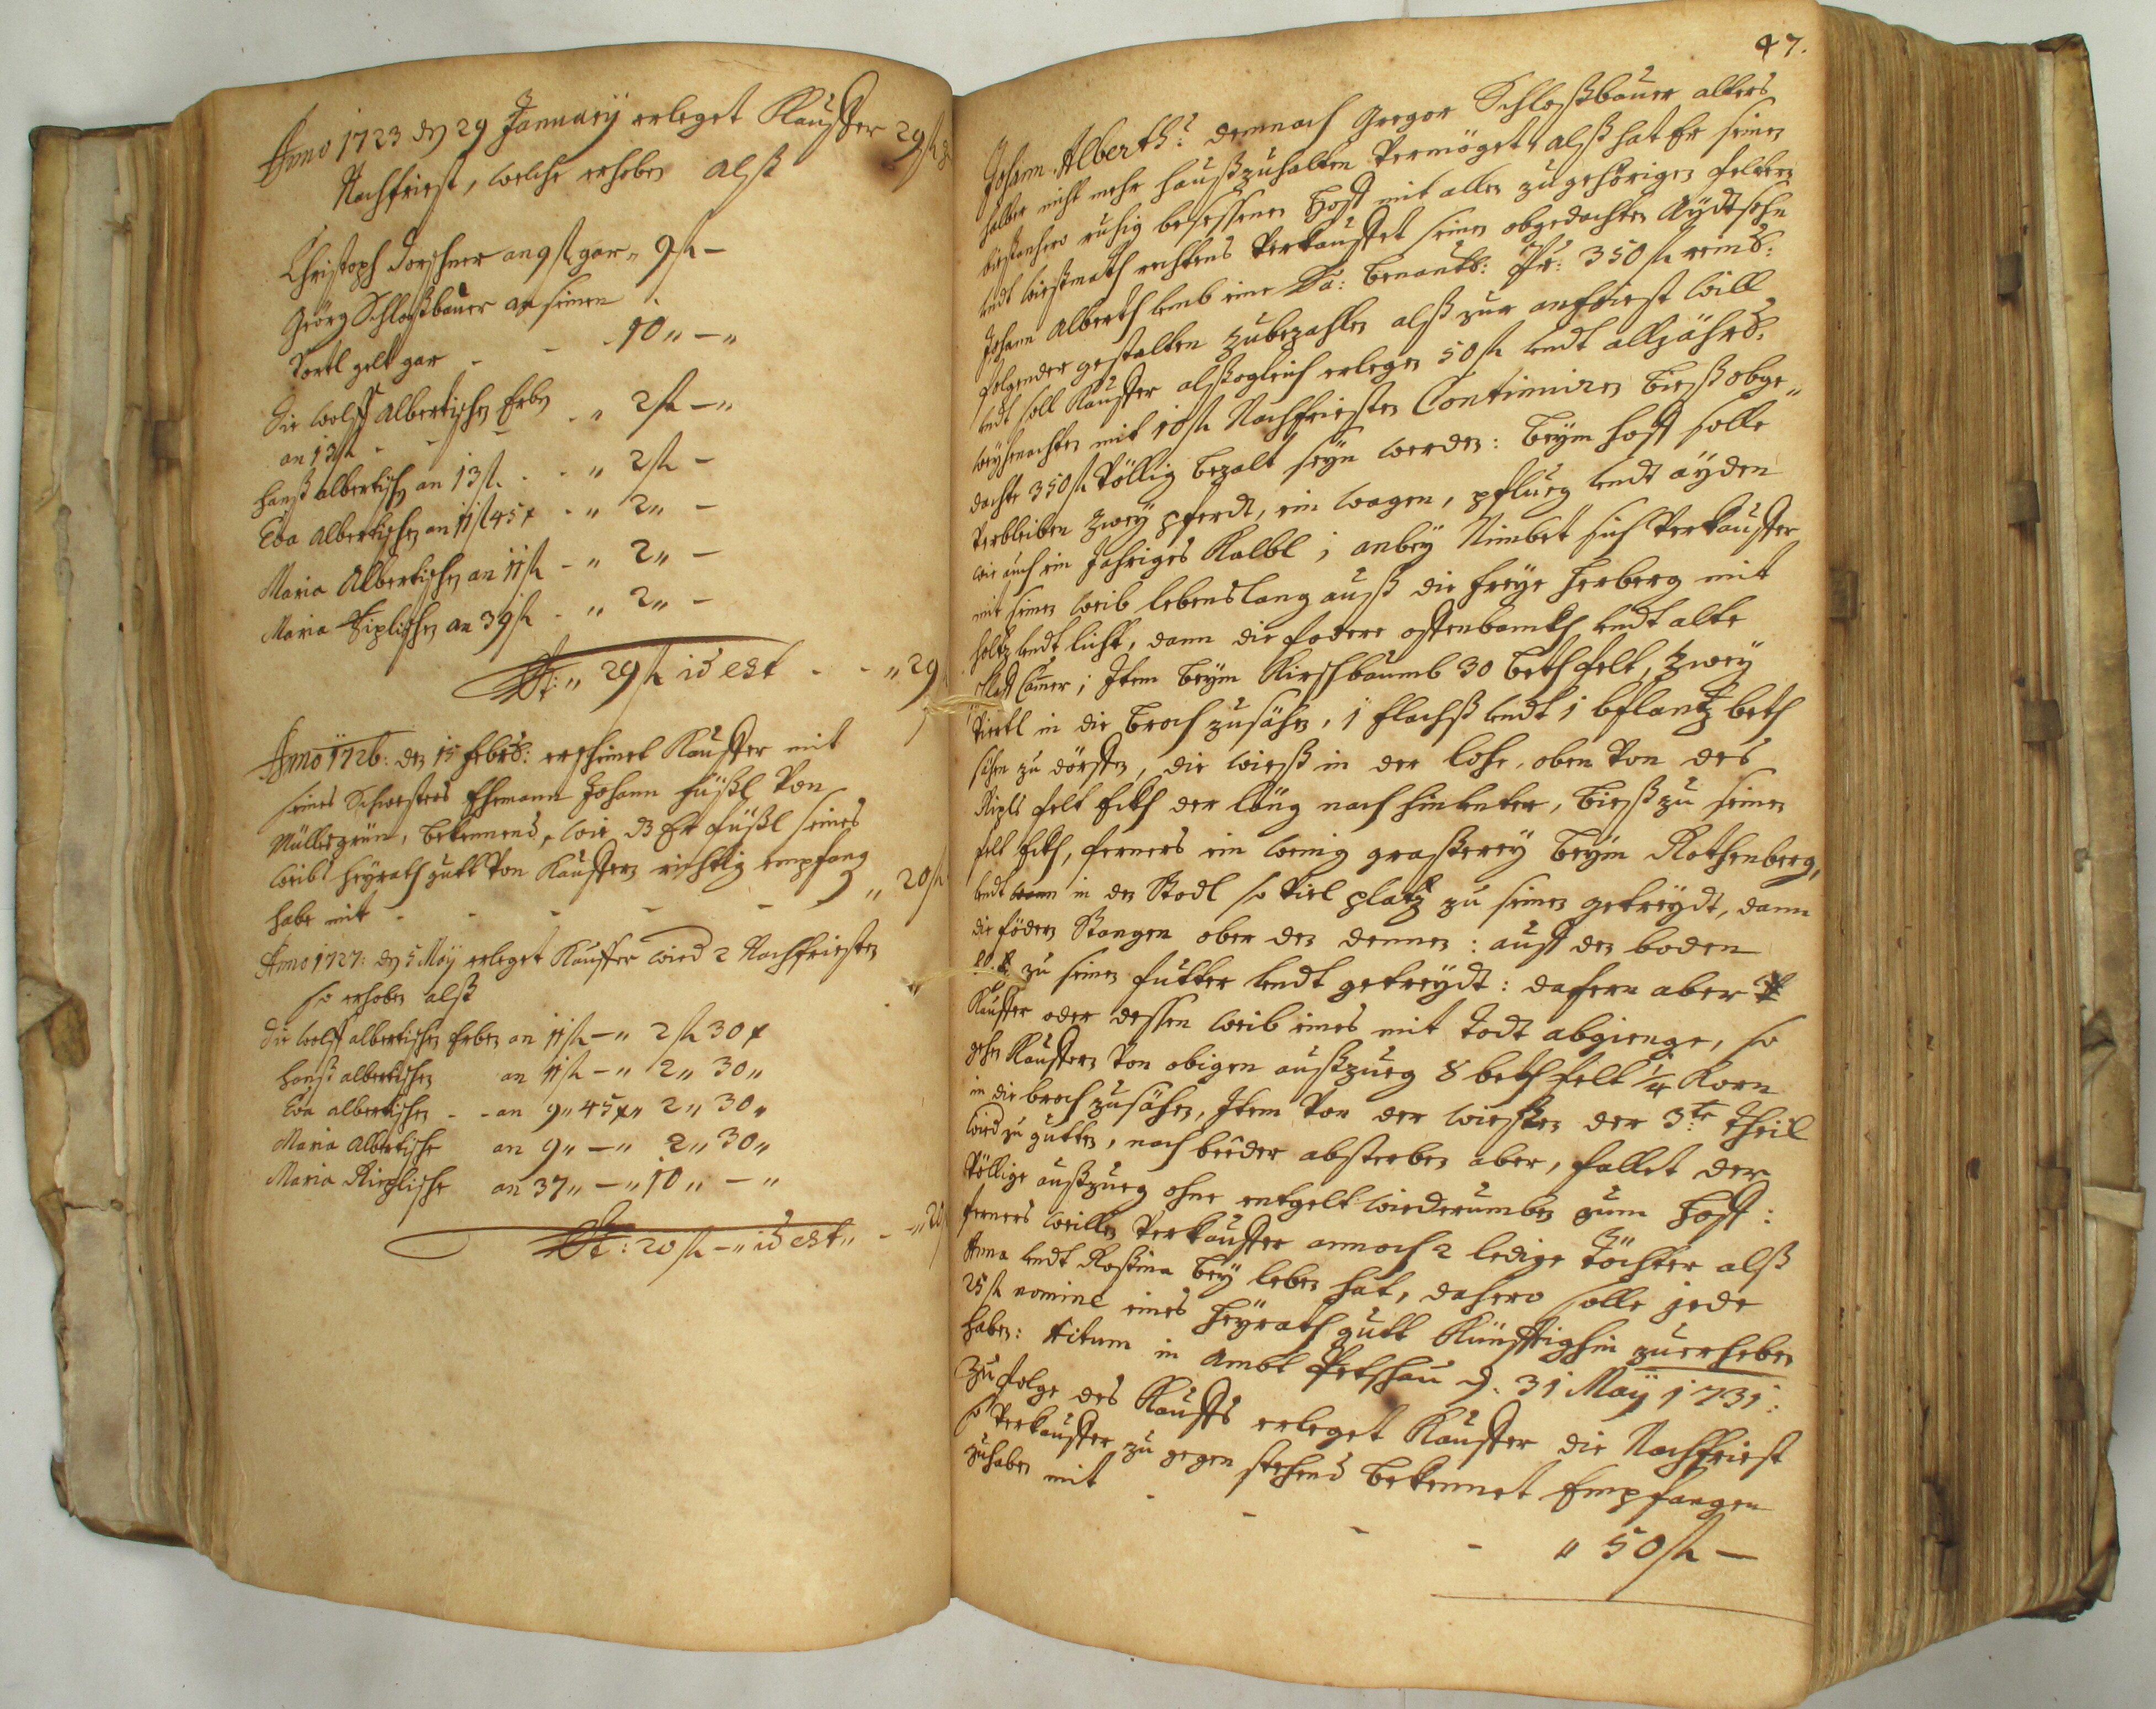 Anno 1723 den 29 January erleget Kauffer 29 fl
Nachfriest, welche erhoben alß
Christoph Dorschner an 9 fl gar „ 9 fl —
Georg Schloßbauer an seinen
Vortl gelt gar - - - 10 „ — „
Die Wolff Albertischen Erben
an 13 fl - - - - „ 2 fl — „
Hanß Albertischen an 13 fl - - „ 2 fl —
Eva Albertischen an 11 fl 45 x - „ 2 „ —
Maria Albertischen an 11 fl - „ 2 „ —
Maria Riplischen an 39 fl - „ 2 „ —
St: „ 29 fl id est - - „ 29
Anno 1726: den 15 Febr: erscheinet Kauffer mit
seines Schwesters Ehemann Johann Füßl von
Müllesgrün, bekennend, wie dß Er Füßl seines
Weibs Heyrath gutt von Kauffern richtig empfang
habe mit - - - - - - „ 20 fl
Anno 1727: den 5 May erleget Kauffer wied 2 Nachfriesten
so erhoben alß
die Wolff Albertischen Erben an 11 fl — „ 2 fl 30 x
Hanß Albertischen an 11 fl — „ 2 „ 30 „
Eva Albertischen - - an 9 „ 45 x „ 2 „ 30 „
Maria Albertische an 9 „ — „ 2 „ 30 „
Maria Riplische an 37 „ — „ 10 „ — „
St: 20 fl — „ id est „ - „ 20
47.
Johann Alberth: demnach Gregor Schloßbauer alters
halber nicht mehr haußzuhalten vermöget, alß hat Er seinen
bißanhero ruhig besessenen Hoff mit allen zugehörigen feldern
undt Wießmath rechtens verkauffet seinen obgedachten Aydtsohn
Johann Alberth umb eine Sa: benantl: Pr: 350 fl reinl:
folgender gestalten zubezahlen alß zur anfriest will
undt soll Kauffer alßogleich erlegen 50 fl undt alljährl:
Weyhenachten mit 10 fl Nachfriesten Continuiren bieß obge„
dachte 350 fl völlig bezalt seyn werden: beym Hoff solle
verbleiben zwey pferdt, ein wagen, pflueg undt ayden
wie auch ein Jahriges Kalbl; anbey Nimbet sich Verkauffer
mit seinen Weib lebenslang auß die freye Herberg mit
Holtz undt licht, dann die fodere offenbankh undt alte
Cammer; Item beym Kirschbaumb 30 beth felt, zwey
viertl in die broch zusähen, 1 flachß undt 1 bflantz beth
sähen zu dörffen, die wieß in der lohe, oben von des
Ripls felt Ekh der läng nach hinunter, bieß zu seinen
felt Ekh, ferners ein wenig graßerey beym Rothenberg,
undt in den Stodl so viel platz zu seinen getreydt, dann
die födern Stangen ober den dennen: auff den boden
zu seinen futter undt getreydt: dafern aber
Kauffer oder dessen Weib eines mit Todt abgienge, so
gehen Kauffern von obigen außzueg 8 beth felt 1/4 Korn
in die broch zusähen, Item von der wießen der 3te Theil
wied zu gutten, nach beeder absterben aber, fallet der
völlige außzueg ohne entgelt wiederumben zum Hoff:
ferners weillen Verkauffer annoch 2 ledige Töchter alß
Anna undt Roßina bey leben hat, dahero solle jede
25 fl nomine eines Heyrath gutt Künfftighin zuerheben
haben: Actum in Ambt Petschau d. 31 May 1731:
Zu folge des Kauffs erleget Kauffer die Nachfriest
so Verkauffer zu gegen stehend bekennet Empfangen
zuhaben mit - - - - „ 50 fl —